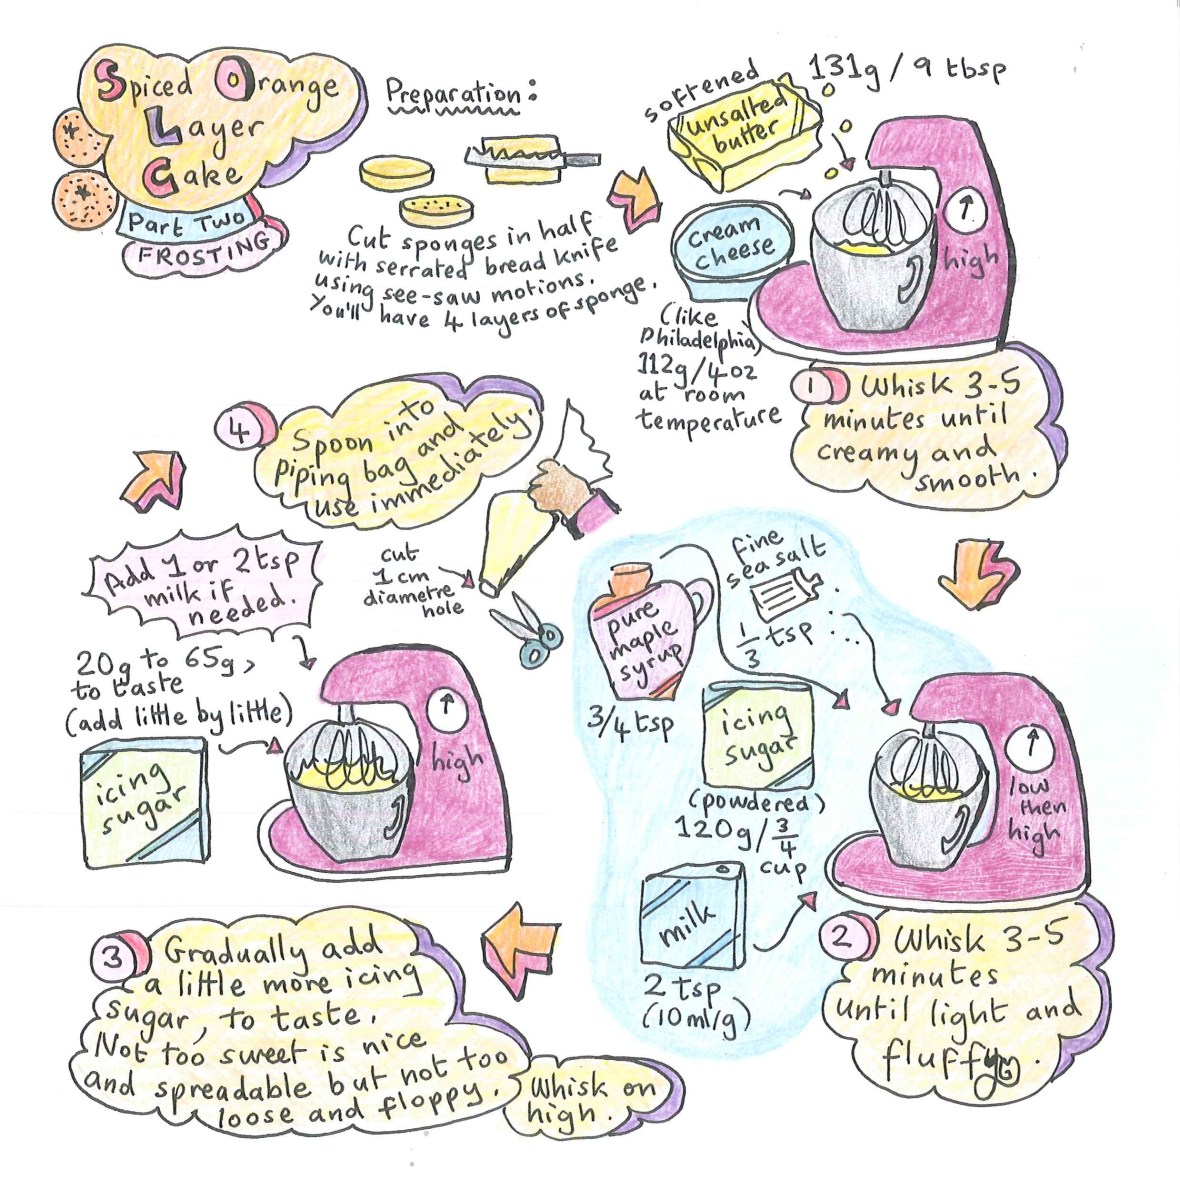 Spiced Orange
Layer
Cake
Part Two
FROSTING
Preparation:
Cut sponges in half
with serrated bread knife
using see-saw motions.
You'll have 4 layers of sponge.
softened
unsalted
butter
131g / 9 tbsp
cream
cheese
(like
Philadelphia)
112g/4oz
at room
temperature
high
1 Whisk 3-5
minutes until
creamy and
smooth.
fine
sea salt
1/3 tsp
pure
maple
syrup
3/4 tsp
icing
sugar
(powdered)
120g/3/4
cup
milk
2 tsp
(10ml/g)
low
then
high
2 Whisk 3-5
minutes
until light and
fluffy.
3 Gradually add
a little more icing
sugar, to taste.
Not too sweet is nice
and spreadable but not too
loose and floppy.
Whisk on
high.
Add 1 or 2 tsp
milk if
needed.
20g to 65g,
to taste
(add little by little)
icing
sugar
high
4 Spoon into
piping bag and
use immediately.
cut
1 cm
diametre
hole